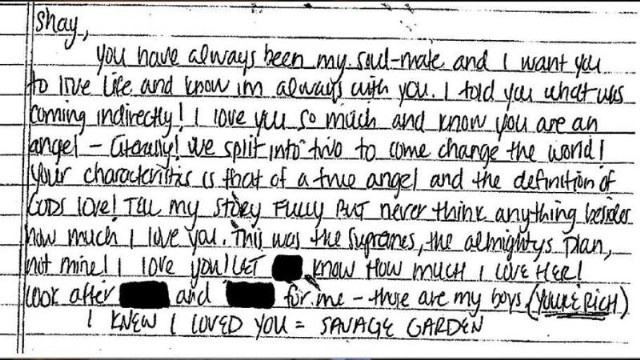 Shay,
You have always been my soul-mate and I want you
to live life and know im always with you. I told you what was
coming indirectly! I love you so much and know you are an
angel - Literally! We split into two to come change the world!
Your characteristics is that of a true angel and the definition of
GODS LOVE! TELL MY STORY FULLY BUT never think anything besides
how much I love you. This was the Supremes, the almightys Plan,
not mine! I love you! LET KNOW HOW MUCH I LOVE HER!
Look after and for me - those are my boys (YOU'RE RICH)
I KNEW I LOVED YOU = SAVAGE GARDEN